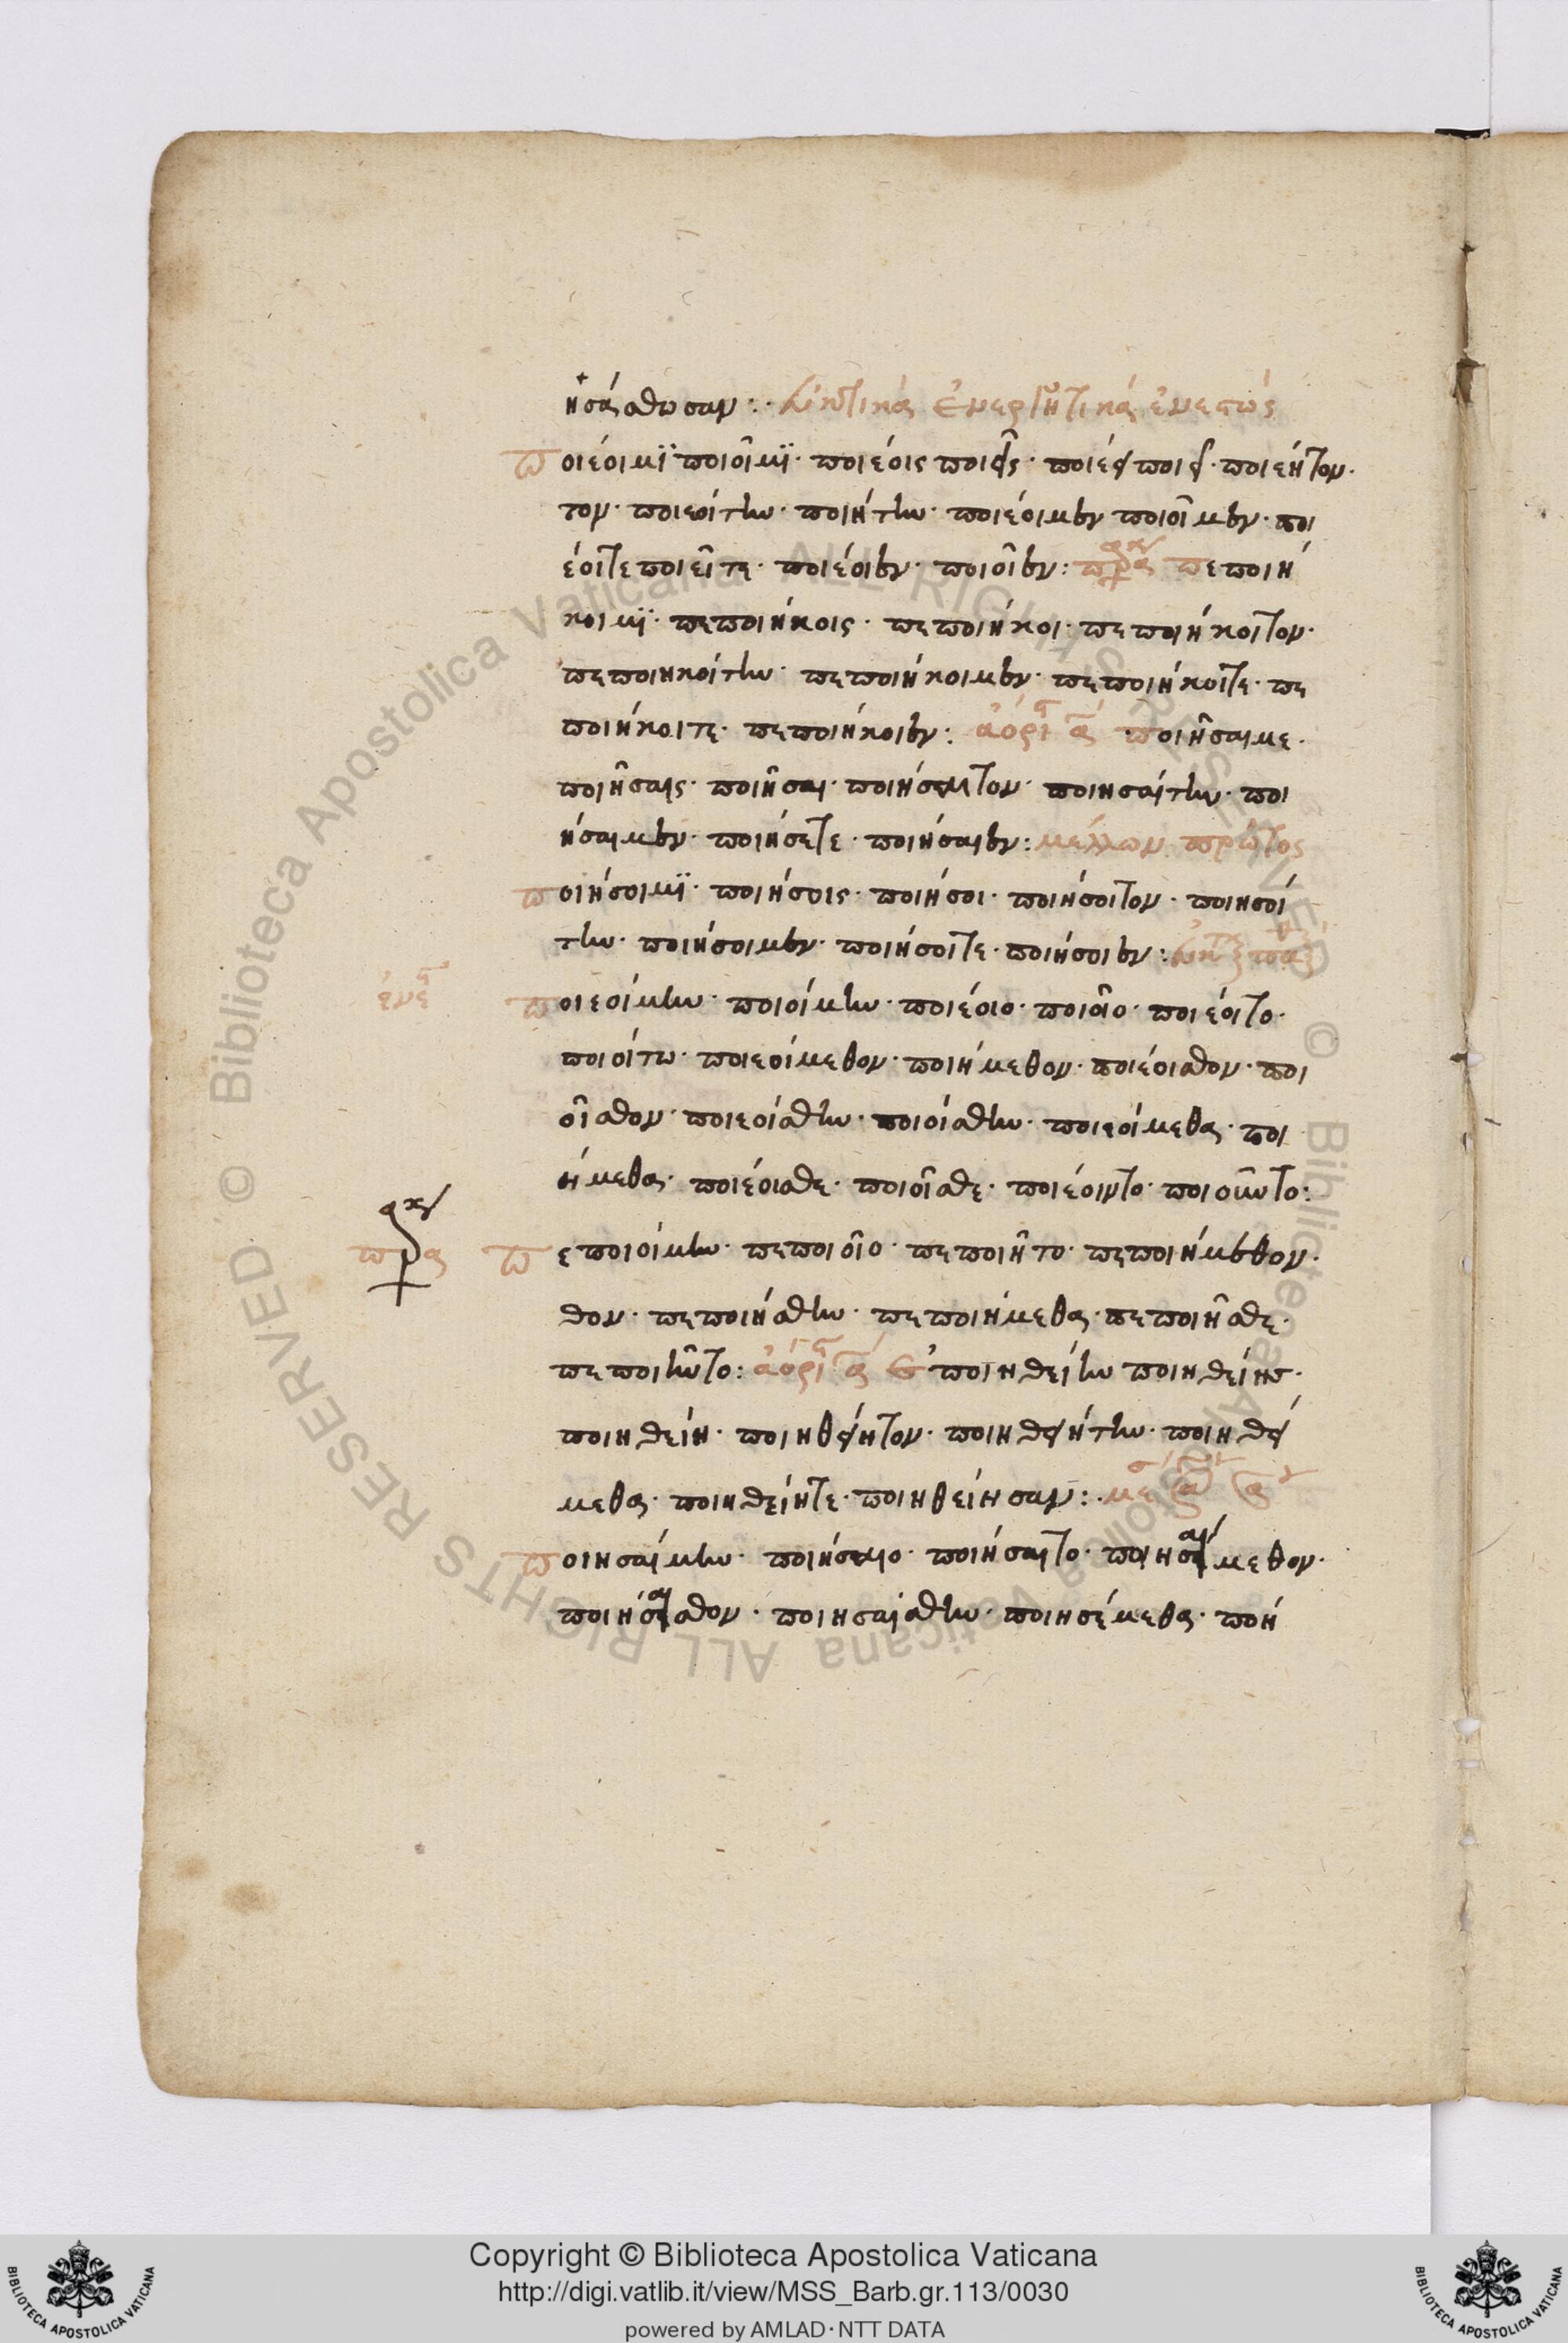 ησάσθωσαν:· εὐκτικὰ ἐνεργητικὰ ἐνεστώς
ποιέοιμϊ ποιοῖμϊ· ποιέοις ποιοῖς· ποιέοι ποιοῖ· ποιεήτον·
τον· ποιεοίτην· ποιήτην· ποιέοιμεν ποιοῖμεν· ποι
έοιτε ποιεῖτε· ποιέοιεν· ποιοῖεν: πρκα πεποιή
κοιμϊ· πεποιήκοις· πεποιήκοι· πεποιήκοιτον·
πεποιηκοίτην· πεποιήκοιμεν· πεποιήκοιτε· πε
ποιήκοιτε· πεποιήκοιεν: ἀόρι α ποιῆσαιμε·
ποιῆσαις· ποιῆσαι· ποιήσαιτον· ποιησαίτην· ποι
ήσαιμεν· ποιήσετε· ποιήσαιεν: μέλλων πρῶτος
ποιήσοιμϊ· ποιήσοις· ποιήσοι· ποιήσοιτον· ποιησοί
την· ποιήσοιμεν· ποιήσοιτε· ποιήσοιεν:
ἐνε
ποιεοίμην· ποιοίμην· ποιέοιο· ποιοῖο· ποιέοιτο·
ποιοίτω· ποιεοίμεθον· ποιήμεθον· ποιέοισθον· ποι
οῖσθον· ποιεοίσθην· ποιοίσθην· ποιεοίμεθα· ποι
ήμεθα· ποιέοισθε· ποιοῖσθε· ποιέοιντο· ποιοῦντο:
πρκα πεποιοίμην· πεποιοῖο· πεποιῆτο· πεποιήμεθον·
θον· πεποιήσθην· πεποιήμεθα· πεποιῆσθε·
πεποιῆντο: ἀόρι α ποιηθείην ποιηθείης·
ποιηθείη· ποιηθείητον· ποιηθειήτην· ποιηθεί
μεθα· ποιηθείητε· ποιηθείησαν:· με α α
ποιησαίμην· ποιήσαιο· ποιήσαιτο· ποιησαίμεθον·
ποιήσαισθον· ποιησαίσθην· ποιησέμεθα· ποή
Copyright © Biblioteca Apostolica Vaticana
http://digi.vatlib.it/view/MSS_Barb.gr.113/0030
powered by AMLAD·NTT DATA